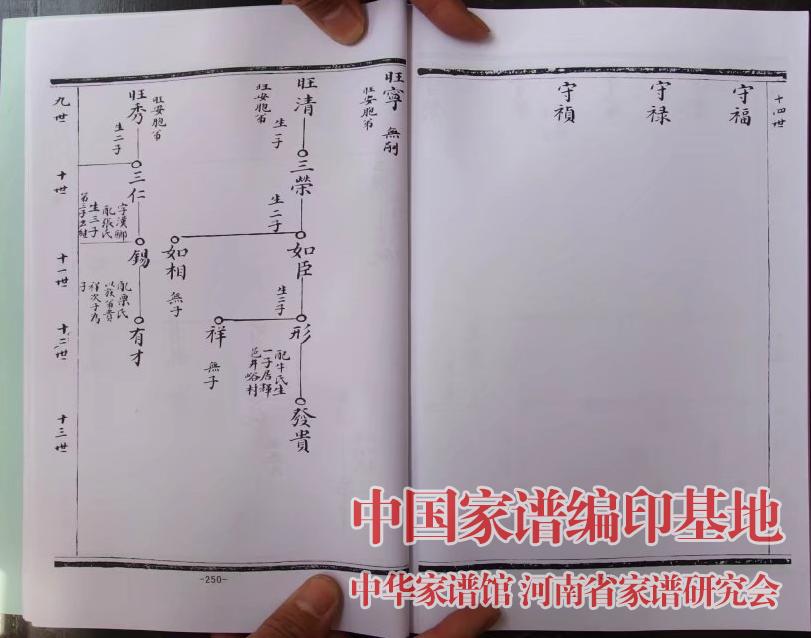 十四世
守福
守禄
守禎
旺寧
無嗣
旺安胞弟
旺清
旺安胞弟
生一子
三榮
生二子
如臣
生二子
形
配牛氏生
一子居輝
邑井峪村
發貴
如相
無子
祥
無子
旺秀
旺安胞弟
生二子
三仁
字漢卿
配張氏
生三子
錫
配栗氏
有才
九世
十世
十一世
十二世
十三世
-250-
中国家谱编印基地
中华家谱馆 河南省家谱研究会